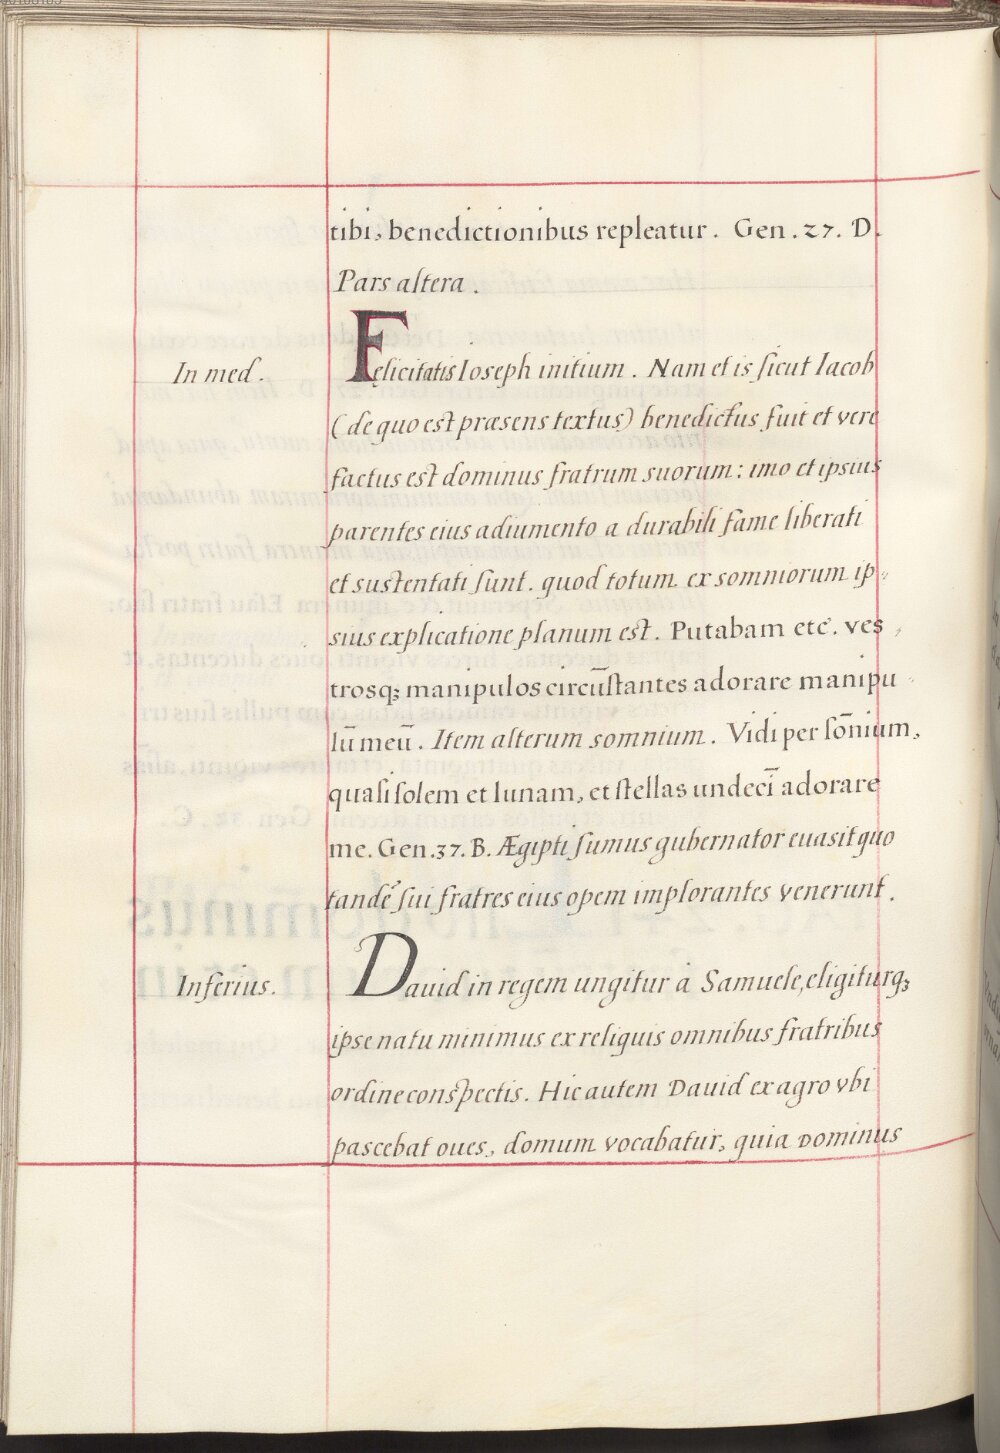 tibi, benedictionibus repleatur. Gen. 27. D.
Pars altera.
In med. Felicitatis Ioseph initium. Nam et is sicut Iacob
(de quo est præsens textus) benedictus fuit et vere
factus est dominus fratrum suorum: imo et ipsius
parentes eius adiumento a durabili fame liberati
et sustentati sunt. quod totum ex somniorum ip,
sius explicatione planum est. Putabam etc. ves,
trosq; manipulos circūstantes adorare manipu
lū meū. Item alterum somnium. Vidi per som̄nium,
quasi solem et lunam, et stellas undecī adorare
me. Gen. 37. B. Ægipti sumus gubernator euasit quo
tandē sui fratres eius opem implorantes venerunt.
Inferius. Dauid in regem ungitur à Samuele, eligiturq;
ipse natu minimus ex reliquis omnibus fratribus
ordine conspectis. Hic autem Dauid ex agro vbi
pascebat oues, domum vocabatur, quia Dominus